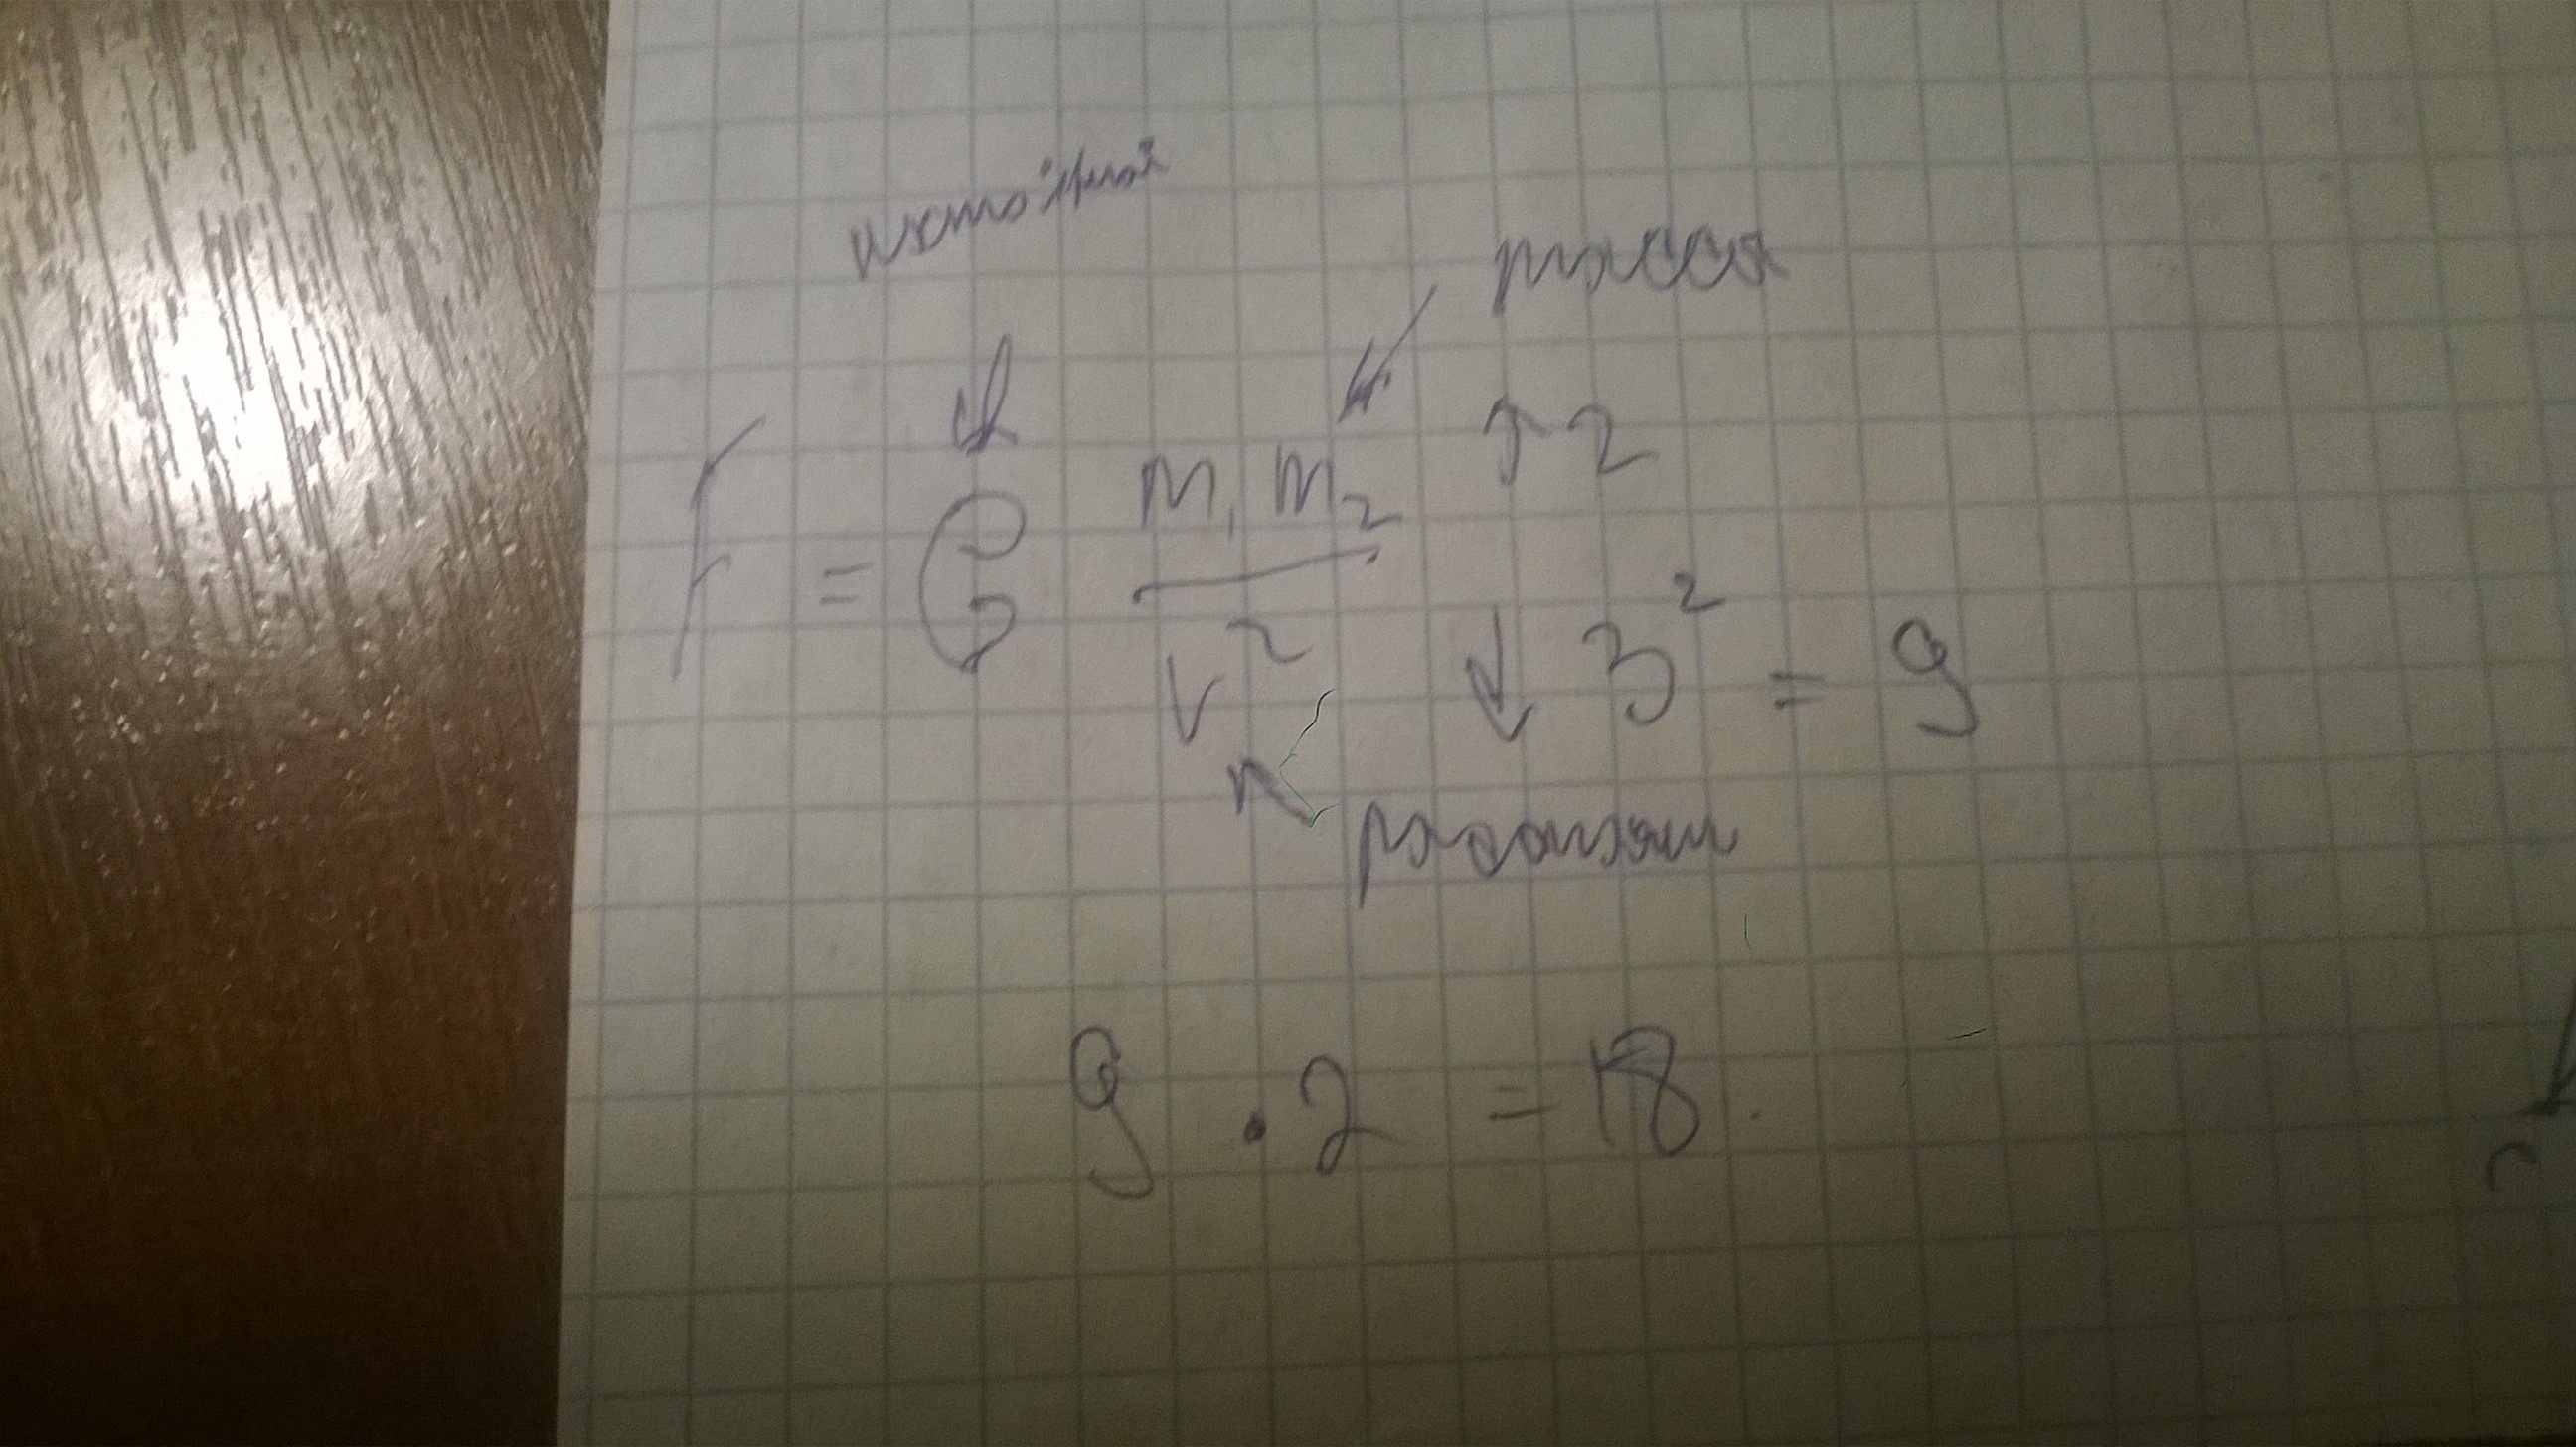 масса
↑ 2
F = G m₁ m₂ / r²
↓ 3² = 9
9 · 2 = 18